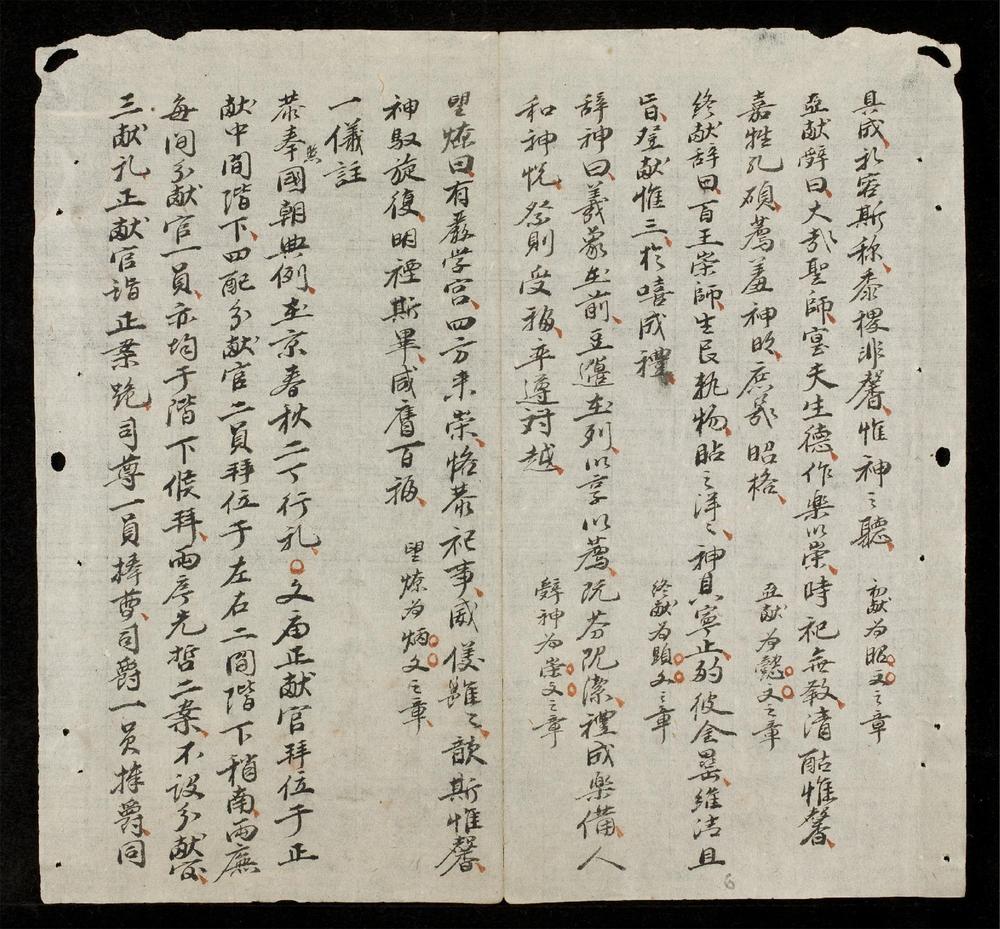 具成礼容斯称黍稷非馨惟神之聽 初献为昭文之章
亞献辭曰大哉聖師寔天生德作楽以崇時祀無斁清酤惟馨
嘉牲孔碩薦羞神明庶幾昭格 亞献为懿文之章
終献辞曰百王崇師生民軌物瞻之洋〻神其寧止酌彼金罍維清且
旨登献惟三於嘻成禮 終献为顕文之章
辞神曰羲象在前豆籩在列以享以薦既芬既潔禮成楽備人
和神悦祭則受福率遵対越 辭神为崇文之章
望燎曰有嚴学宮四方来崇恪恭祀事威仪雝〻歆斯惟馨
神馭旋復明禋斯畢咸膺百福 望燎为炳文之章
一儀註
恭奉國朝典例在京春秋二丁行礼文庙正献官拜位于正
献中間階下四配分献官二員拜位于左右二間階下稍南両廡
每间分献官一員亦均于階下候拜両序先哲二案不设分献官
三献礼正献官詣正案跪司尊一員捧尊司爵一员捧爵同
6